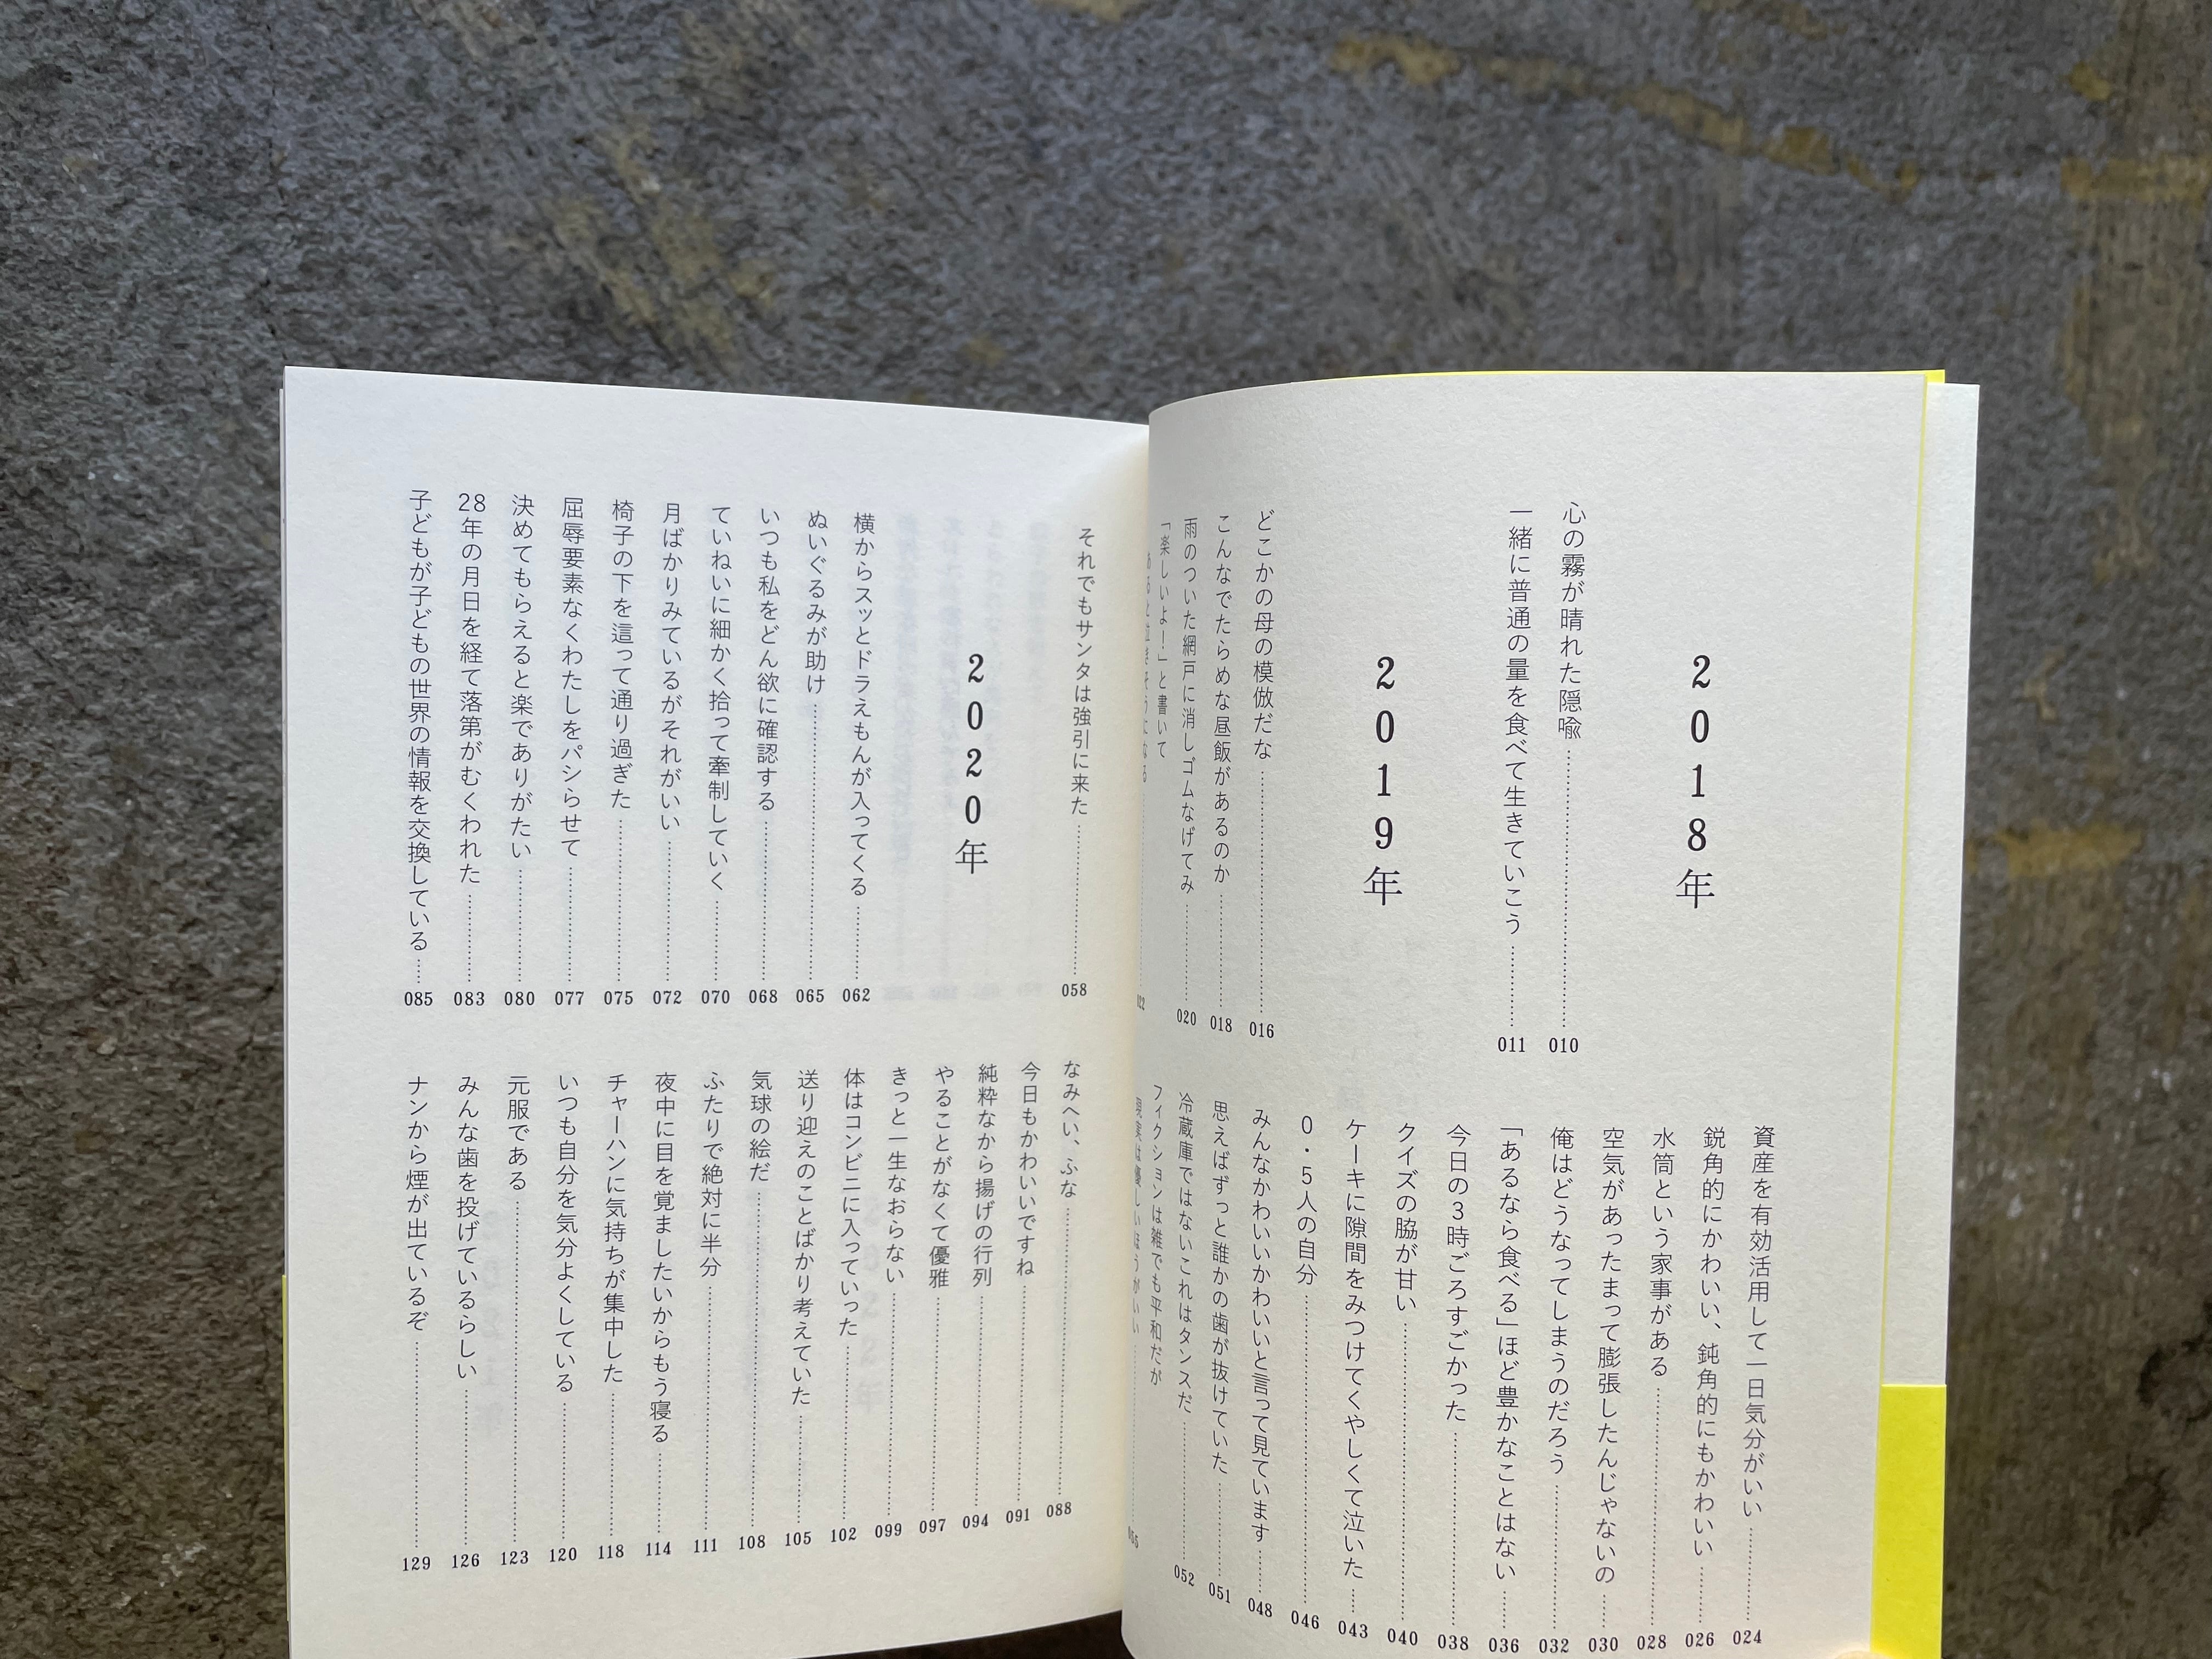 2018年
心の霧が晴れた隠喩 010
一緒に普通の量を食べて生きていこう 011
2019年
どこかの母の模倣だな 016
こんなでたらめな昼飯があるのか 018
雨のついた網戸に消しゴムなげてみ 020
「楽しいよ！」と書いて
あると泣きそうになる 022
資産を有効活用して一日気分がいい 024
鋭角的にかわいい、鈍角的にもかわいい 026
水筒という家事がある 028
空気があったまって膨張したんじゃないの 030
俺はどうなってしまうのだろう 032
「あるなら食べる」ほど豊かなことはない 036
今日の3時ごろすごかった 038
クイズの脇が甘い 040
ケーキに隙間をみつけてくやしくて泣いた 043
0・5人の自分 046
みんなかわいいかわいいと言って見ています 048
思えばずっと誰かの歯が抜けていた 051
冷蔵庫ではないこれはタンスだ 052
フィクションは雑でも平和だが
現実は優しいほうがいい 055
それでもサンタは強引に来た 058
2020年
横からスッとドラえもんが入ってくる 062
ぬいぐるみが助け 065
いつも私をどん欲に確認する 068
ていねいに細かく拾って牽制していく 070
月ばかりみているがそれがいい 072
椅子の下を這って通り過ぎた 075
屈辱要素なくわたしをパシらせて 077
決めてもらえると楽でありがたい 080
28年の月日を経て落第がむくわれた 083
子どもが子どもの世界の情報を交換している 085
なみへい、ふな 088
今日もかわいいですね 091
純粋なから揚げの行列 094
やることがなくて優雅 097
きっと一生なおらない 099
体はコンビニに入っていった 102
送り迎えのことばかり考えていた 105
気球の絵だ 108
ふたりで絶対に半分 111
夜中に目を覚ましたいからもう寝る 114
チャーハンに気持ちが集中した 118
いつも自分を気分よくしている 120
元服である 123
みんな歯を投げているらしい 126
ナンから煙が出ているぞ 129